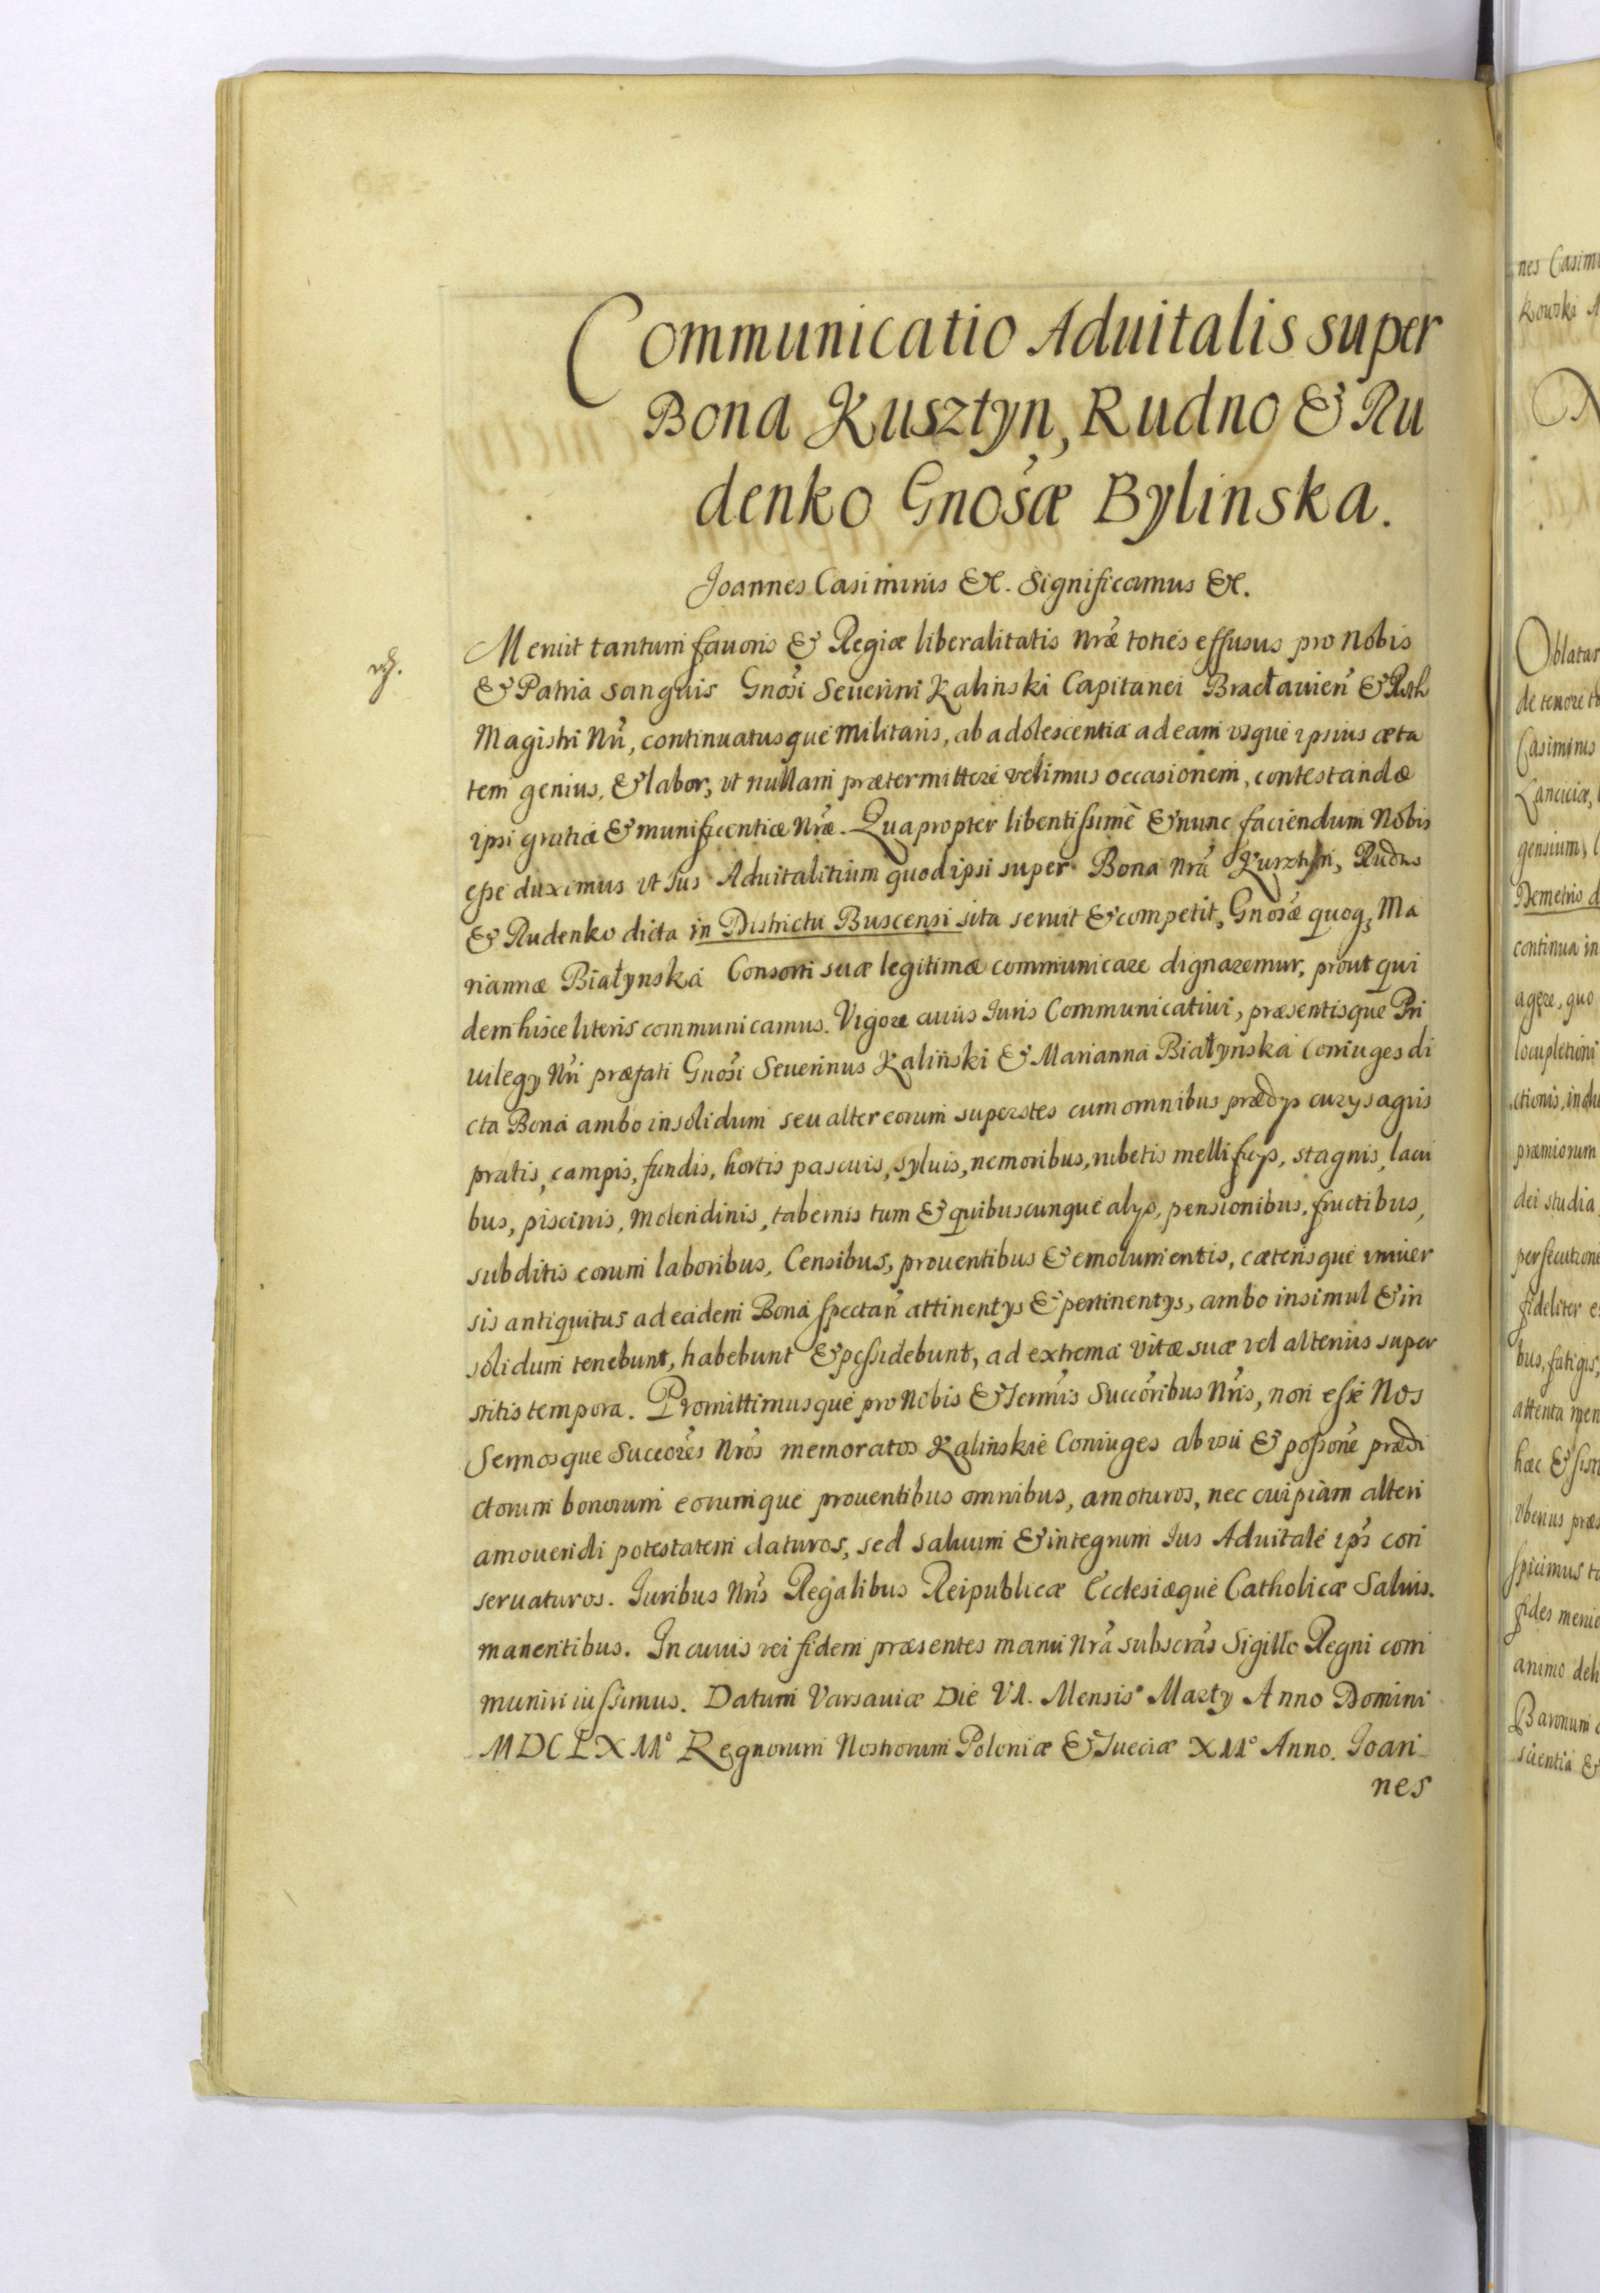 Communicatio Aduitalis super
Bona Kusztyn, Rudno & Ru
denko Gnosæ Bylinska.
Joannes Casimirus &c. Significamus &c.
Meruit tantum fauoris & Regiæ liberalitatis Nræ toties effusus pro Nobis
& Patria sanguis Gnosi Seuerini Kalinski Capitanei Bracłauien & Roth
Magistri Nri, continuatusque militaris, ab adolescentia ad eam usque ipsius æta
tem genius, & labor, ut nullam prætermittere velimus occasionem, contestandæ
ipsi gratiæ & munificentiæ Nræ. Quapropter libentissimè & nunc faciendum Nobis
esse duximus ut Jus Aduitalitium quod ipsi super Bona Nra Kusztyn, Rudno
& Rudenko dicta in Districtu Buscensi sita seruit & competit, Gnosæ quoq, Ma
riannæ Białynska Consorti suæ legitimæ communicare dignaremur, prout qui
dem hisce literis communicamus. Vigore cuius Juris Communicatiui, præsentisque Pri
uilegy Nri præfati Gnosi Seuerinus Kaliński & Marianna Białyńska Coniuges di
cta Bona ambo insolidum seu alter eorum superstes cum omnibus prædys curys agris
pratis, campis, fundis, hortis pascuis, syluis, nemoribus, rubetis mellificys, stagnis, lacu
bus, piscinis, molendinis, tabernis tum & quibuscunque alys, pensionibus, fructibus,
subditis eorum laboribus, Censibus, prouentibus & emolumentis, cæterisque uniuer
sis antiquitus ad eadem Bona spectan attinentys & pertinentys, ambo insimul & in
solidum tenebunt, habebunt & possidebunt, ad extrema vitæ suæ vel alterius super
stitis tempora. Promittimusque pro Nobis & Sermis Succoribus Nris, non esse Nos
Sermosque Succores Nros memoratos Kalińskie Coniuges ab usu & possone prædi
ctorum bonorum eorumque prouentibus omnibus, amoturos, nec cuipiam alteri
amouendi potestatem daturos, sed saluum & integrum Jus Aduitale ips con
seruaturos. Juribus Nris Regalibus Reipublicæ Ecclesiæque Catholicæ Saluis.
manentibus. In cuius rei fidem præsentes manu Nra subscras Sigillo Regni com
muniri iussimus. Datum Varsauiæ Die VI. Mensis Marty Anno Domini
MDCLXII° Regnorum Nostrorum Poloniæ & Sueciæ XIII° Anno. Joan
nes
nes Casimi
kowski
Oblatas
de tenore
Casimirus
Lanciciæ,
gensium,
Demetrio d
continua in
agere, quo
locupletioni
ctionis, indu
præmiorum
dei studia,
persecutione
fideliter
bus, fatigis,
attenta men
hæc &
Vberius præs
spicimus
fides
animo
Baronum